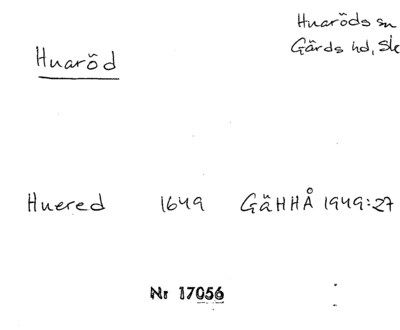 Huaröds sn
Gärds hd, Sk
Huaröd
Huered 1649 GäHHÅ 1949:27
Nr 17056